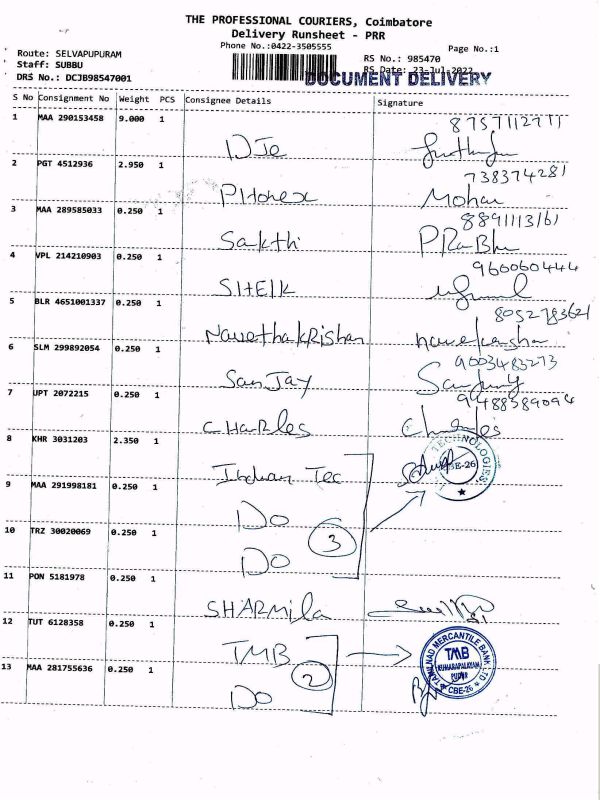 THE PROFESSIONAL COURIERS, Coimbatore
Delivery Runsheet - PRR
Phone No.:0422-3505555
Page No.:1
Route: SELVAPUPURAM
Staff: SUBBU
DRS No.: DCJB98547001
RS No.: 985470
RS Date: 23-Jul-2022
DOCUMENT DELIVERY
S No Consignment No Weight PCS Consignee Details Signature
1 MAA 290153458 9.000 1
DJe
2 PGT 4512936 2.950 1
738374281
Mohan
3 MAA 289585033 0.250 1
Sakthi PRaBhu
4 VPL 214210903 0.250 1
960060444
SHEIK
5 BLR 4651001337 0.250 1
NavethakRishan
6 SLM 299892054 0.250 1
9003483273
SanJay Sanjay
7 UPT 2072215 0.250 1
CHARles Charles
8 KHR 3031203 2.350 1
TECHNOLOGIES
CBE-26
9 MAA 291998181 0.250 1
Do
10 TRZ 30020069 0.250 1
3
Do
11 PON 5181978 0.250 1
SHARMila
12 TUT 6128358 0.250 1
TMB
TAMILNAD MERCANTILE BANK LTD
TMB
KUMARAPALAYAM
PUDUR
CBE-26
13 MAA 281755636 0.250 1
2
Do